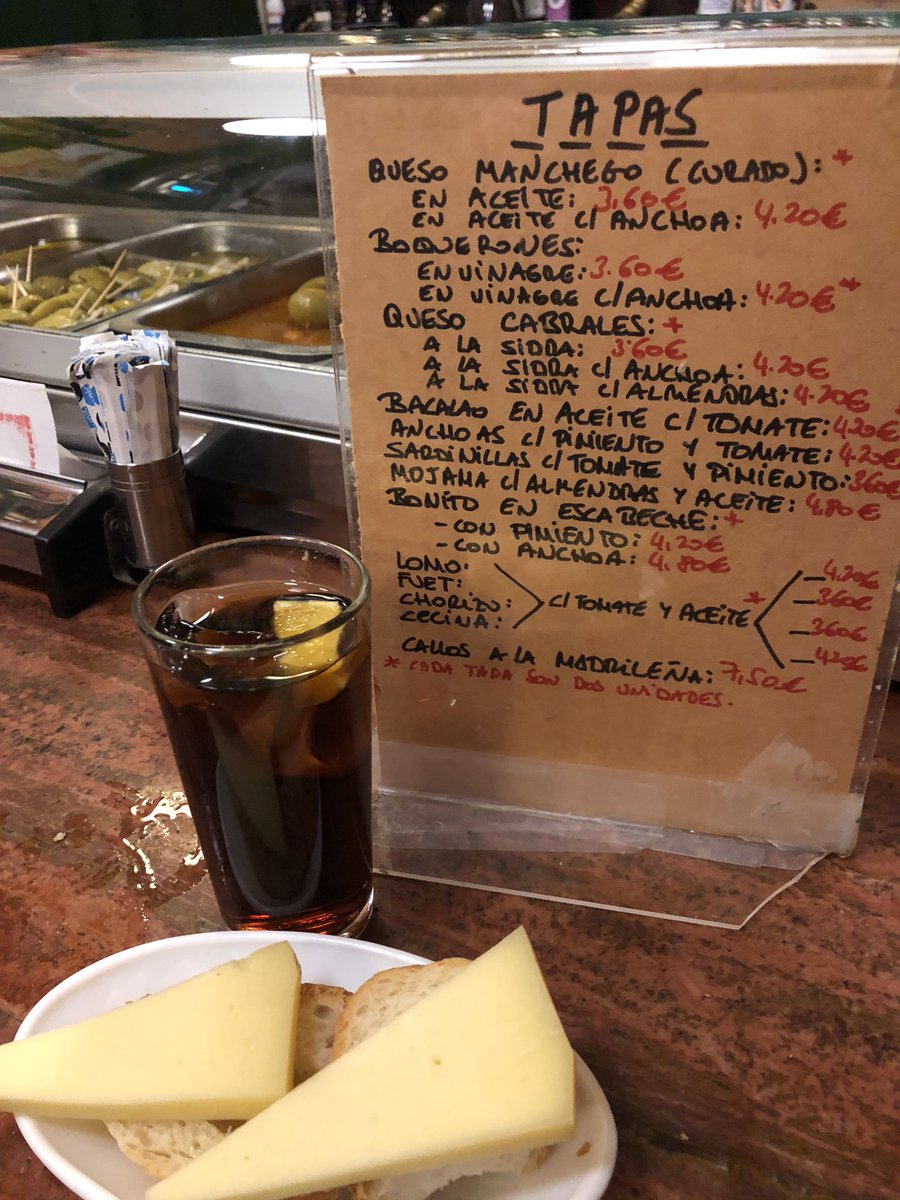 TAPAS
QUESO MANCHEGO (CURADO): *
EN ACEITE: 3,60€
EN ACEITE C/ ANCHOA: 4.20€
BOQUERONES:
EN VINAGRE: 3.60€
EN VINAGRE C/ANCHOA: 4.20€*
QUESO CABRALES: *
A LA SIDRA: 360€
A LA SIDRA C/ ANCHOA: 4.20€
A LA SIDRA C/ ALMENDRAS: 4.20€
BACALAO EN ACEITE C/ TOMATE: 4.20€
ANCHOAS C/ PIMIENTO Y TOMATE: 4.20€
SARDINILLAS C/ TOMATE Y PIMIENTO: 360€
MOJAMA C/ ALMENDRAS Y ACEITE: 4.80€
BONITO EN ESCABECHE: *
- CON PIMIENTO: 4.20€
- CON ANCHOA: 4.80€
LOMO: 4.20€
FUET: 3.60€
CHORIZO: C/ TOMATE Y ACEITE * 360€
CECINA: 4.20€
CALLOS A LA MADRILEÑA: 7,50€
* CADA TAPA SON DOS UNIDADES.